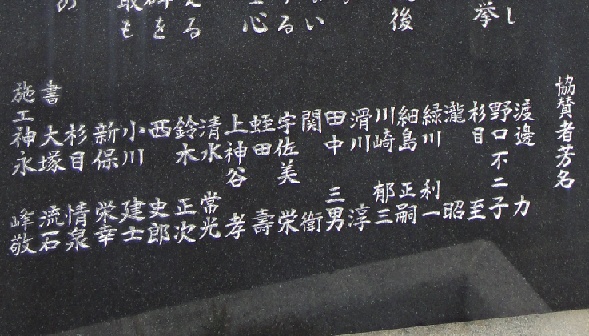 協賛者芳名
渡邉 力
野口不二子
杉目 至
瀧 昭
緑川 利一
細島 正嗣
川崎 郁三
滑川 淳
田中 三男
関 衛
宇佐美 栄
蛭田 壽
上神谷 孝
清水 常光
鈴木 正次
西 史郎
小川 建士
新保 栄幸
杉目 情泉
書 大塚 流石
施工 神永 峰敬